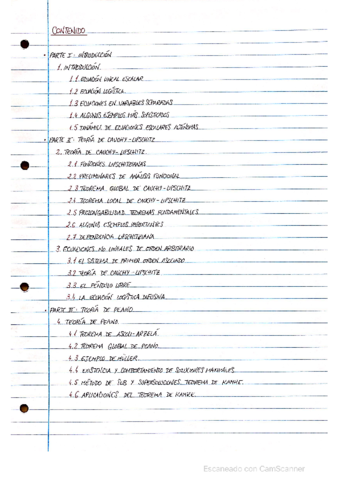 CONTENIDO
· PARTE I: INTRODUCCIÓN
1. INTRODUCCIÓN
1.1 ECUACIÓN LINEAL ESCALAR
1.2 ECUACIÓN LOGÍSTICA
1.3 ECUACIONES EN VARIABLES SEPARADAS
1.4 ALGUNOS EJEMPLOS MÁS SOFISTICADOS
1.5 DINÁMICA DE ECUACIONES ESCALARES AUTÓNOMAS
· PARTE II: TEORÍA DE CAUCHY-LIPSCHITZ
2. TEORÍA DE CAUCHY-LIPSCHITZ
2.1 FUNCIONES LIPSCHITZIANAS
2.2 PRELIMINARES DE ANÁLISIS FUNCIONAL
2.3 TEOREMA GLOBAL DE CAUCHY-LIPSCHITZ
2.4 TEOREMA LOCAL DE CAUCHY-LIPSCHITZ
2.5 PROLONGABILIDAD. TEOREMAS FUNDAMENTALES
2.6 ALGUNOS EJEMPLOS IMPORTANTES
2.7 DEPENDENCIA LIPSCHITZIANA
3. ECUACIONES NO LINEALES DE ORDEN ARBITRARIO
3.1 EL SISTEMA DE PRIMER ORDEN ASOCIADO
3.2 TEORÍA DE CAUCHY-LIPSCHITZ
3.3 EL PÉNDULO LIBRE
3.4 LA ECUACIÓN LOGÍSTICA DIFUSIVA
· PARTE III: TEORÍA DE PEANO
4. TEORÍA DE PEANO
4.1 TEOREMA DE ASCOLI-ARZELÁ
4.2 TEOREMA GLOBAL DE PEANO
4.3 EJEMPLO DE MÜLLER
4.4 EXISTENCIA Y COMPORTAMIENTO DE SOLUCIONES MAXIMALES
4.5 MÉTODO DE SUB Y SUPERSOLUCIONES. TEOREMA DE KAMKE
4.6 APLICACIONES DEL TEOREMA DE KAMKE
Escaneado con CamScanner